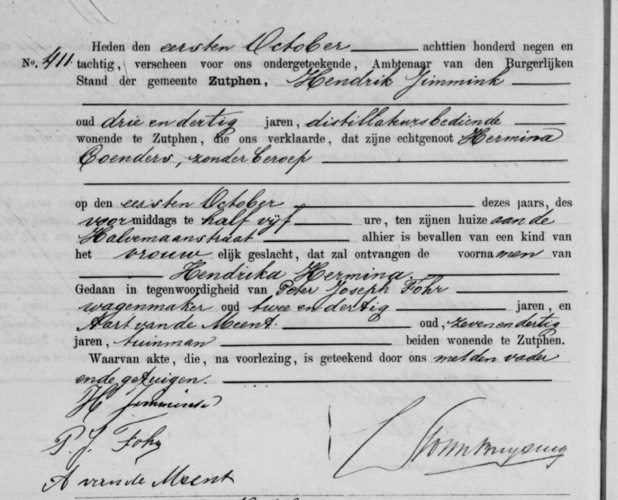 Heden den eersten October achttien honderd negen en
No. 411. tachtig, verscheen voor ons ondergeteekende, Ambtenaar van den Burgerlijken
Stand der gemeente Zutphen, Hendrik Jimmink
oud drie en dertig jaren, distillateursbediende
wonende te Zutphen, die ons verklaarde, dat zijne echtgenoot Hermina
Coenders, zonder beroep
op den eersten October dezes jaars, des
voor middags te half vijf ure, ten zijnen huize aan de
Halvemaanstraat alhier is bevallen van een kind van
het vrouw elijk geslacht, dat zal ontvangen de voornamen van
Hendrika Hermina.
Gedaan in tegenwoordigheid van Peter Joseph Fohr
wagenmaker oud twee en dertig jaren, en
Aart van de Meent. oud, zeven en dertig
jaren, tuinman beiden wonende te Zutphen.
Waarvan akte, die, na voorlezing, is geteekend door ons met den vader
en de getuigen.
H Jimmink
P. J. Fohr
A van de Meent